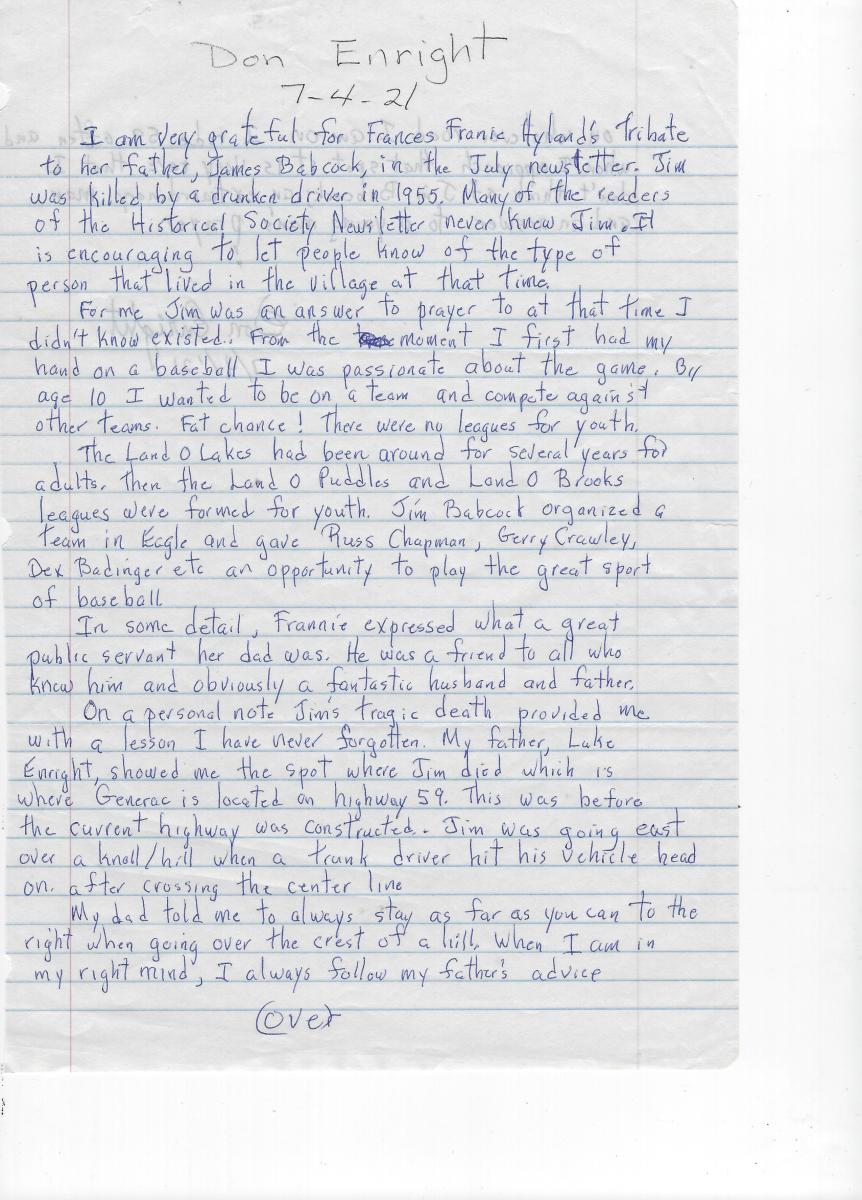 Don Enright
7-4-21
I am very grateful for Frances Franie Hyland's Tribate
to her father, James Babcock, in the July newsletter. Jim
was killed by a drunken driver in 1955. Many of the readers
of the Historical Society Newsletter never knew Jim. It
is encouraging to let people know of the type of
person that lived in the village at that time.
For me Jim was an answer to prayer to at that time I
didn't know existed. From the moment I first had my
hand on a baseball I was passionate about the game. By
age 10 I wanted to be on a team and compete against
other teams. Fat chance! There were no leagues for youth.
The Land O Lakes had been around for several years for
adults. Then the Land O Puddles and Land O Brooks
leagues were formed for youth. Jim Babcock organized a
team in Eagle and gave Russ Chapman, Gerry Crawley,
Dex Badinger etc an opportunity to play the great sport
of baseball
In some detail, Frannie expressed what a great
public servant her dad was. He was a friend to all who
knew him and obviously a fantastic husband and father.
On a personal note Jim's tragic death provided me
with a lesson I have never forgotten. My father, Luke
Enright, showed me the spot where Jim died which is
where Generac is located on highway 59. This was before
the current highway was constructed. Jim was going east
over a knoll/hill when a trunk driver hit his vehicle head
on. after crossing the center line
My dad told me to always stay as far as you can to the
right when going over the crest of a hill. When I am in
my right mind, I always follow my father's advice
(over